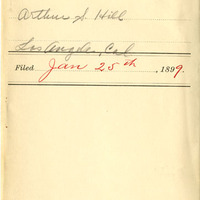 Arthur S. Hill
Los Angeles, Cal
Filed Jan 25th, 1899.